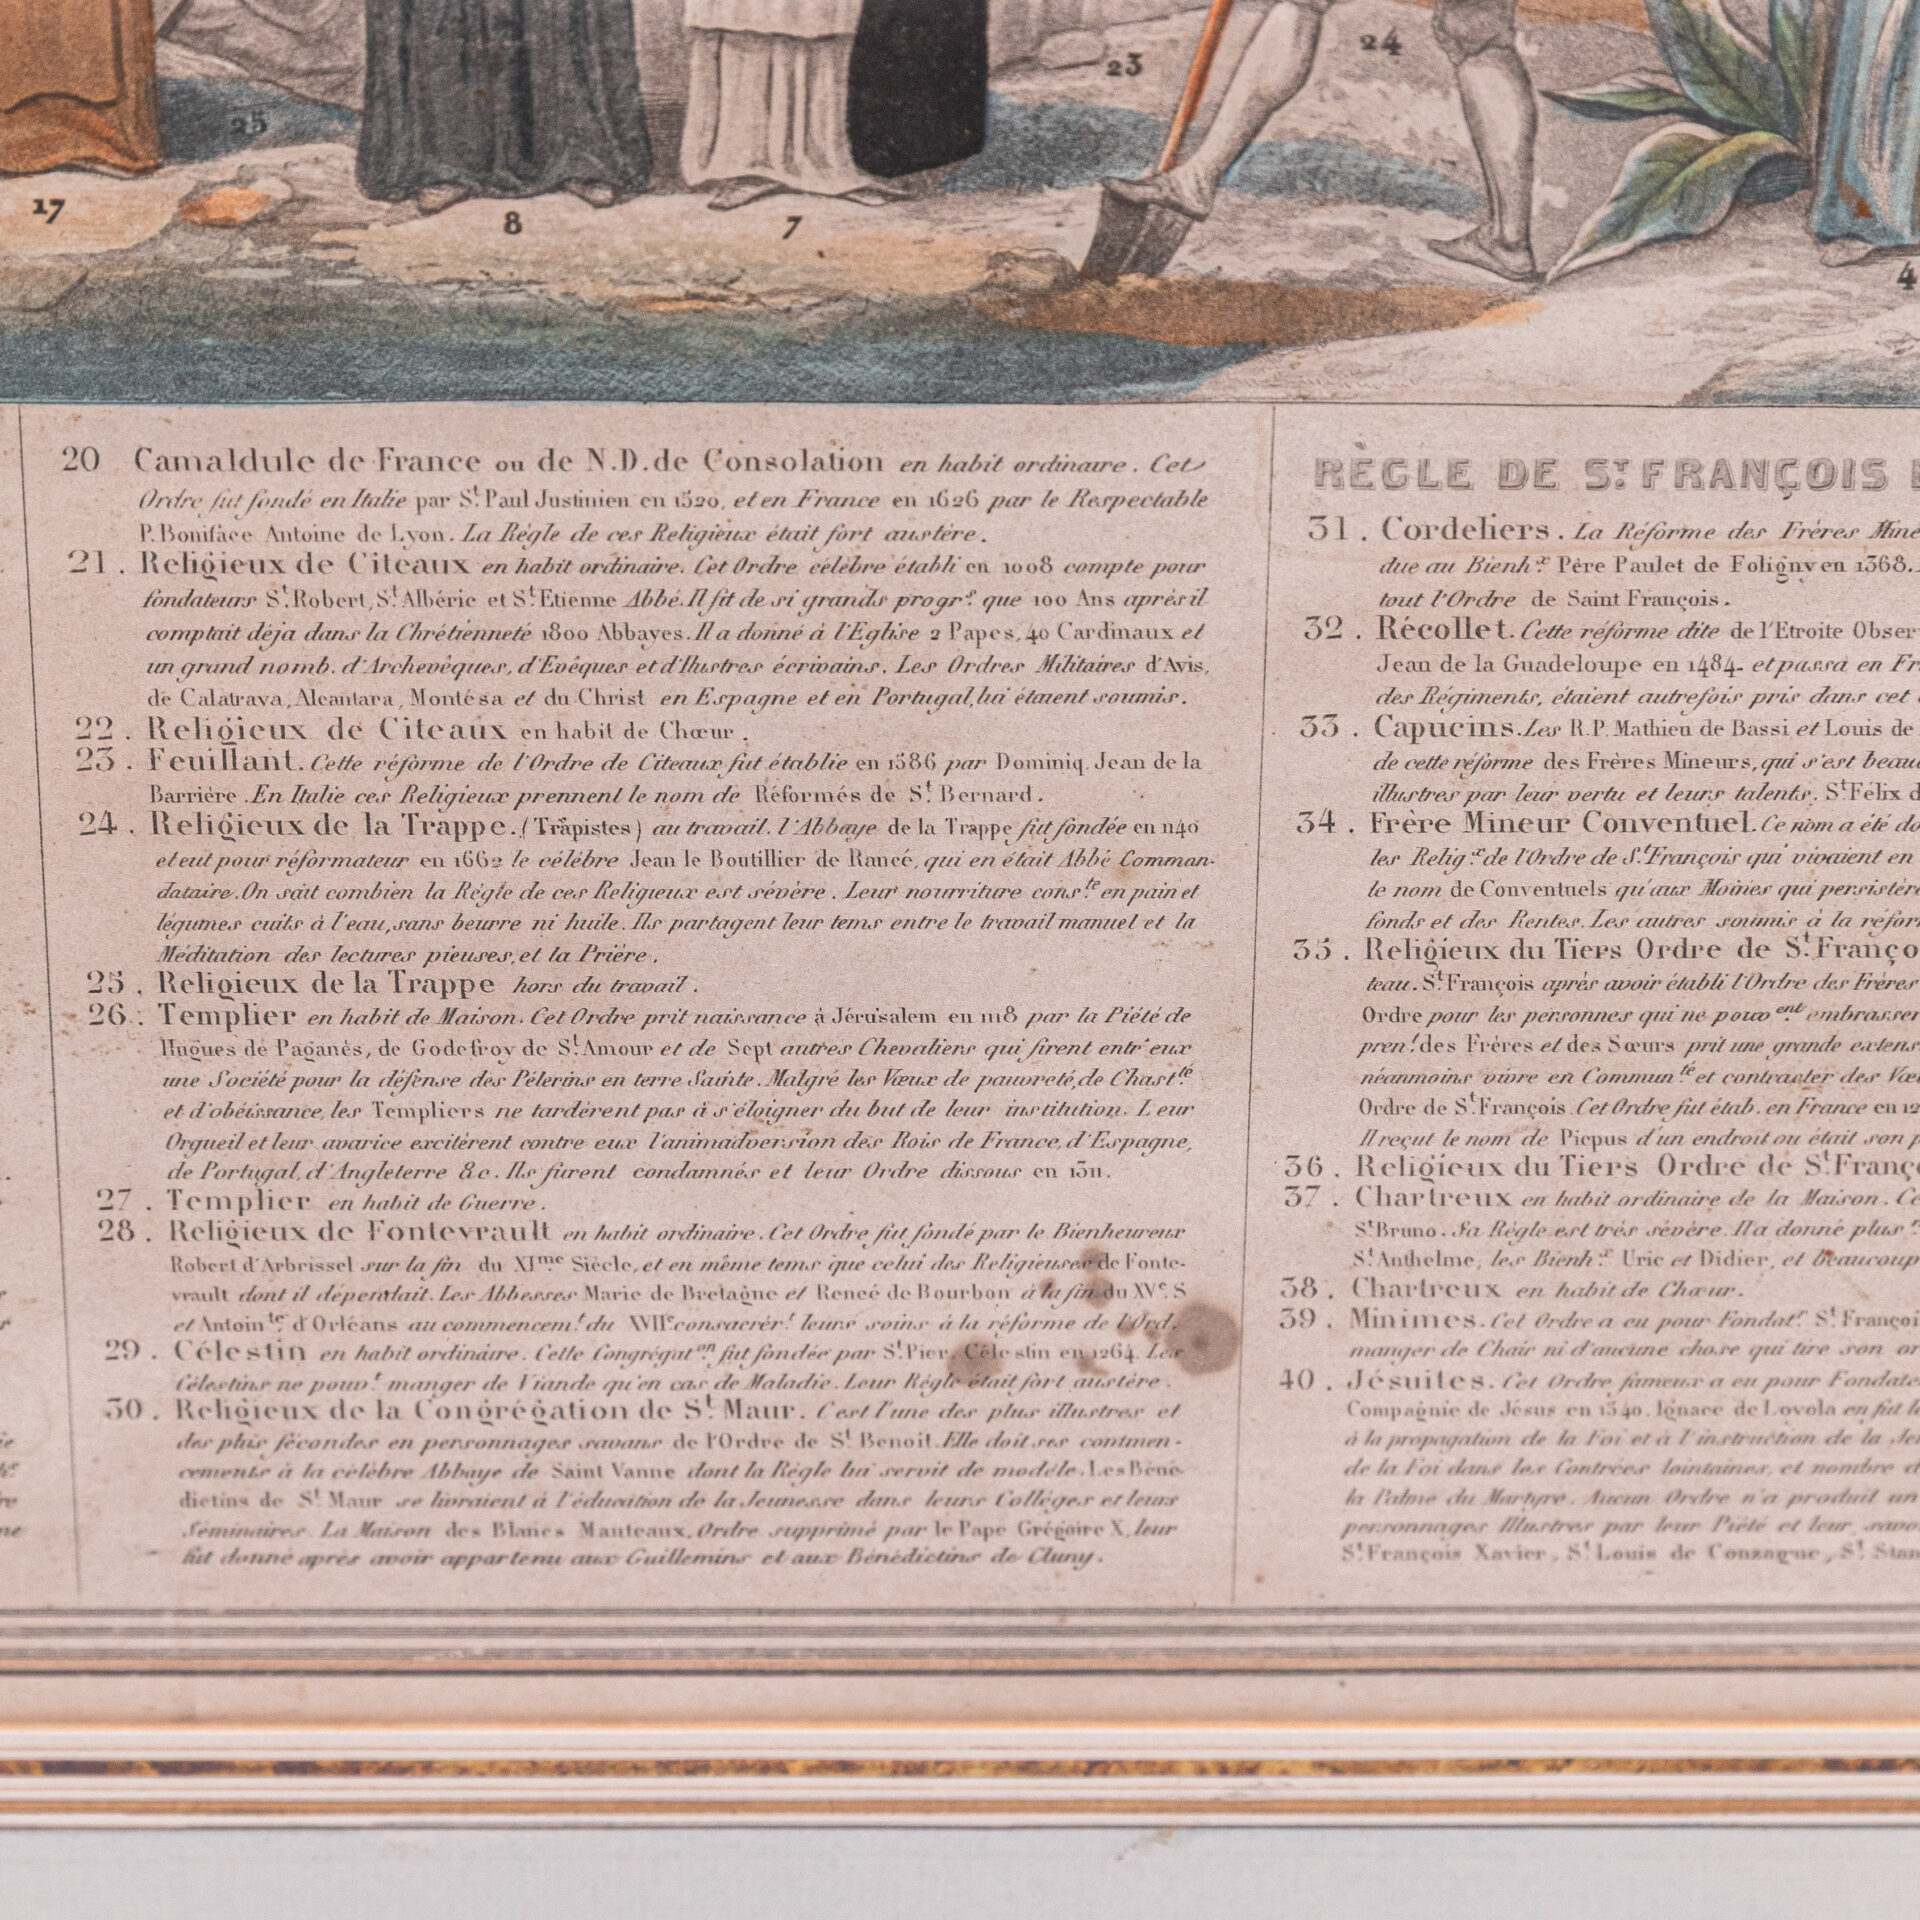 23
24
25
17
8
7
4
20 Camaldule de France ou de N.D. de Consolation en habit ordinaire. Cet
Ordre fut fondé en Italie par St. Paul Justinien en 1520, et en France en 1626 par le Respectable
P. Boniface Antoine de Lyon. La Règle de ces Religieux était fort austère.
21. Religieux de Citeaux en habit ordinaire. Cet Ordre célèbre établi en 1008 compte pour
fondateurs St. Robert, St. Albéric et St. Etienne Abbé. Il fit de si grands progrs. que 100 Ans après il
comptait déja dans la Chrétienneté 1800 Abbayes. Il a donné à l'Eglise 2 Papes, 40 Cardinaux et
un grand nomb. d'Archevêques, d'Evêques et d'Ilustres écrivains. Les Ordres Militaires d'Avis,
de Calatrava, Alcantara, Montésa et du Christ en Espagne et en Portugal, lui étaient soumis.
22. Religieux de Citeaux en habit de Chœur.
23. Feuillant. Cette réforme de l'Ordre de Citeaux fut établie en 1586 par Dominiq. Jean de la
Barrière. En Italie ces Religieux prennent le nom de Réformés de St. Bernard.
24. Religieux de la Trappe. (Trapistes) au travail. l'Abbaye de la Trappe fut fondée en 1140
et eut pour réformateur en 1662 le célèbre Jean le Boutillier de Rancé, qui en était Abbé Comman-
dataire. On sait combien la Règle de ces Religieux est sévère. Leur nourriture conste. en pain et
légumes cuits à l'eau, sans beurre ni huile. Ils partagent leur tems entre le travail manuel et la
Méditation des lectures pieuses, et la Prière.
25. Religieux de la Trappe hors du travail.
26. Templier en habit de Maison. Cet Ordre prit naissance à Jérusalem en 1118 par la Piété de
Hugues de Paganès, de Godefroy de St. Amour et de Sept autres Chevaliers qui firent entr'eux
une Société pour la défense des Pélerins en terre Sainte. Malgré les Vœux de pauvreté, de Chastté.
et d'obéissance, les Templiers ne tardèrent pas à s'éloigner du but de leur institution. Leur
Orgueil et leur avarice excitèrent contre eux l'animadversion des Rois de France, d'Espagne,
de Portugal, d'Angleterre &c. Ils furent condamnés et leur Ordre dissous en 1311.
27. Templier en habit de Guerre.
28. Religieux de Fontevrault en habit ordinaire. Cet Ordre fut fondé par le Bienheureux
Robert d'Arbrissel sur la fin du XIme. Siècle, et en même tems que celui des Religieuses de Fonte-
vrault dont il dépendait. Les Abbesses Marie de Bretagne et Reneé de Bourbon à la fin du XVe. S
et Antointe. d'Orléans au commencemt. du XVIIe consacrért. leurs soins à la réforme de l'Ord.
29. Célestin en habit ordinaire. Cette Congrégaton. fut fondée par St. Pier. Célestin en 1264. Les
Célestins ne pouvt. manger de Viande qu'en cas de Maladie. Leur Règle était fort austère.
30. Religieux de la Congrégation de St. Maur. C'est l'une des plus illustres et
des plus fécondes en personnages savans de l'Ordre de St. Benoit. Elle doit ses commen-
cements à la célèbre Abbaye de Saint Vanne dont la Règle lui servit de modèle. Les Béné-
dictins de St. Maur se livraient à l'éducation de la Jeunesse dans leurs Collèges et leurs
Séminaires. La Maison des Blancs Manteaux, Ordre supprimé par le Pape Grégoire X, leur
fut donné après avoir appartenu aux Guillemins et aux Bénédictins de Cluny.
RÈGLE DE ST. FRANÇOIS
31. Cordeliers. La Réforme des Frères Mine
due au Bienhx. Père Paulet de Foligny en 1368.
tout l'Ordre de Saint François.
32. Récollet. Cette réforme dite de l'Etroite Obser
Jean de la Guadeloupe en 1484. et passa en Fr
des Régiments, étaient autrefois pris dans cet
33. Capucins. Les R.P. Mathieu de Bassi et Louis de
de cette réforme des Frères Mineurs, qui s'est beau
illustres par leur vertu et leurs talents. St Félix d
34. Frère Mineur Conventuel. Ce nom a été do
les Religx. de l'Ordre de St. François qui vivaient en
le nom de Conventuels qu'aux Moines qui persistèr
fonds et des Rentes. Les autres soumis à la réfor
35. Religieux du Tiers Ordre de St. Franço
teau. St. François après avoir établi l'Ordre des Frères
Ordre pour les personnes qui ne pouvent. embrasser
prent. des Frères et des Sœurs prit une grande extens
néanmoins vivre en Communté. et contracter des Vœ
Ordre de St. François. Cet Ordre fut étab. en France en 12
Il reçut le nom de Picpus d'un endroit ou était son
36. Religieux du Tiers Ordre de St. Franç
37. Chartreux en habit ordinaire de la Maison. Ce
St Bruno. Sa Règle est très sévère. Il a donné plus
St. Anthelme, les Bienhx. Uric et Didier, et beaucoup
38. Chartreux en habit de Chœur.
39. Minimes. Cet Ordre a eu pour Fondatr. St. Françoi
manger de Chair ni d'aucune chose qui tire son or
40. Jésuites. Cet Ordre fameux a eu pour Fondate
Compagnie de Jésus en 1540. Ignace de Loyola en fut le
à la propagation de la Foi et à l'instruction de la Je
de la Foi dans les Contrées lointaines, et nombre d
la Palme du Martyre. Aucun Ordre n'a produit un
personnages Illustres par leur Piété et leur savo
St. François Xavier, St. Louis de Gonzague, St. Stan